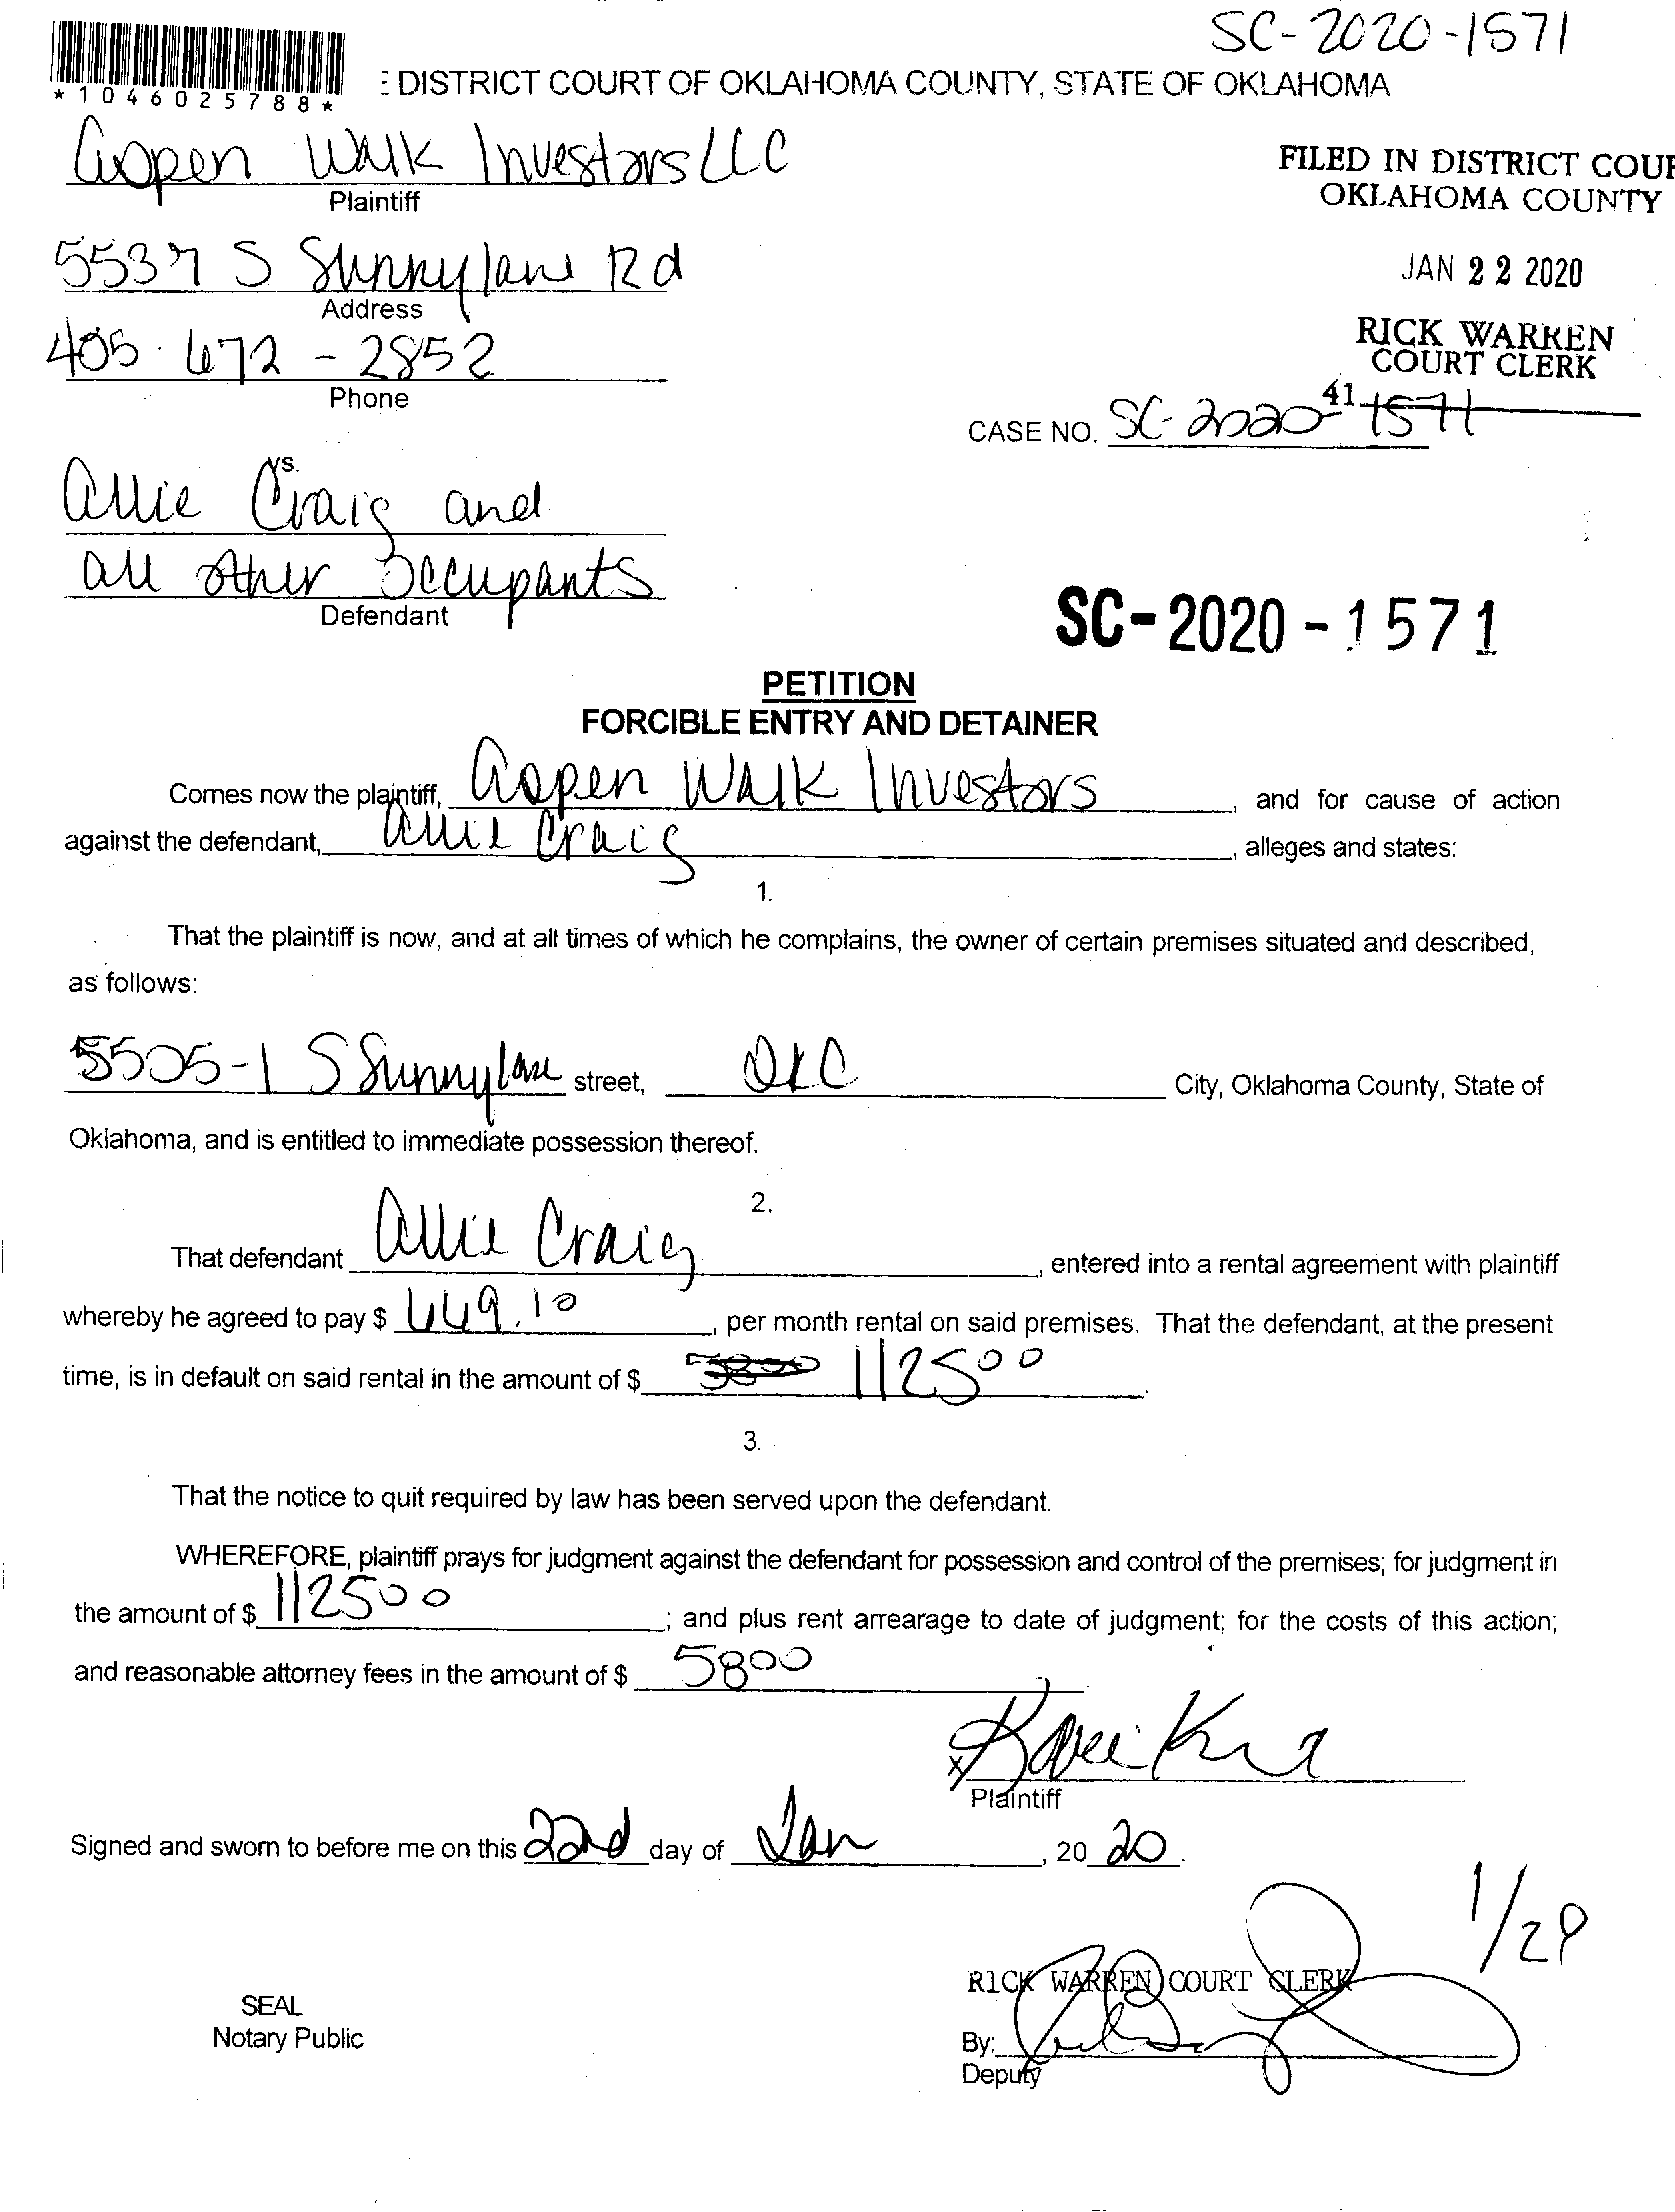 SC-2020-1571
*1046025788*
: DISTRICT COURT OF OKLAHOMA COUNTY, STATE OF OKLAHOMA
Aspen Walk Investors LLC
Plaintiff
FILED IN DISTRICT COUR
OKLAHOMA COUNTY
5537 S Sunnylane Rd
Address
JAN 22 2020
405-672-2852
Phone
RICK WARREN
COURT CLERK
41
CASE NO. SC-2020-1571
vs.
Allie Craig and
all other occupants
Defendant
SC-2020-1571
PETITION
FORCIBLE ENTRY AND DETAINER
Comes now the plaintiff, Aspen Walk Investors, and for cause of action
against the defendant, Allie Craig, alleges and states:
1.
That the plaintiff is now, and at all times of which he complains, the owner of certain premises situated and described,
as follows:
5505-1 S Sunnylane street, OKC City, Oklahoma County, State of
Oklahoma, and is entitled to immediate possession thereof.
2.
That defendant Allie Craig, entered into a rental agreement with plaintiff
whereby he agreed to pay $ 669.10, per month rental on said premises. That the defendant, at the present
time, is in default on said rental in the amount of $ 5800 112500.
3.
That the notice to quit required by law has been served upon the defendant.
WHEREFORE, plaintiff prays for judgment against the defendant for possession and control of the premises; for judgment in
the amount of $ 112500; and plus rent arrearage to date of judgment; for the costs of this action;
and reasonable attorney fees in the amount of $ 5800
X
Plaintiff
Signed and sworn to before me on this 22nd day of Jan, 20 20.
1/29
RICK WARREN COURT CLERK
SEAL
Notary Public
By:
Deputy